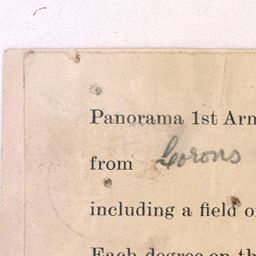 Panorama 1st Arm
from Corons
including a field o
Each degree on th